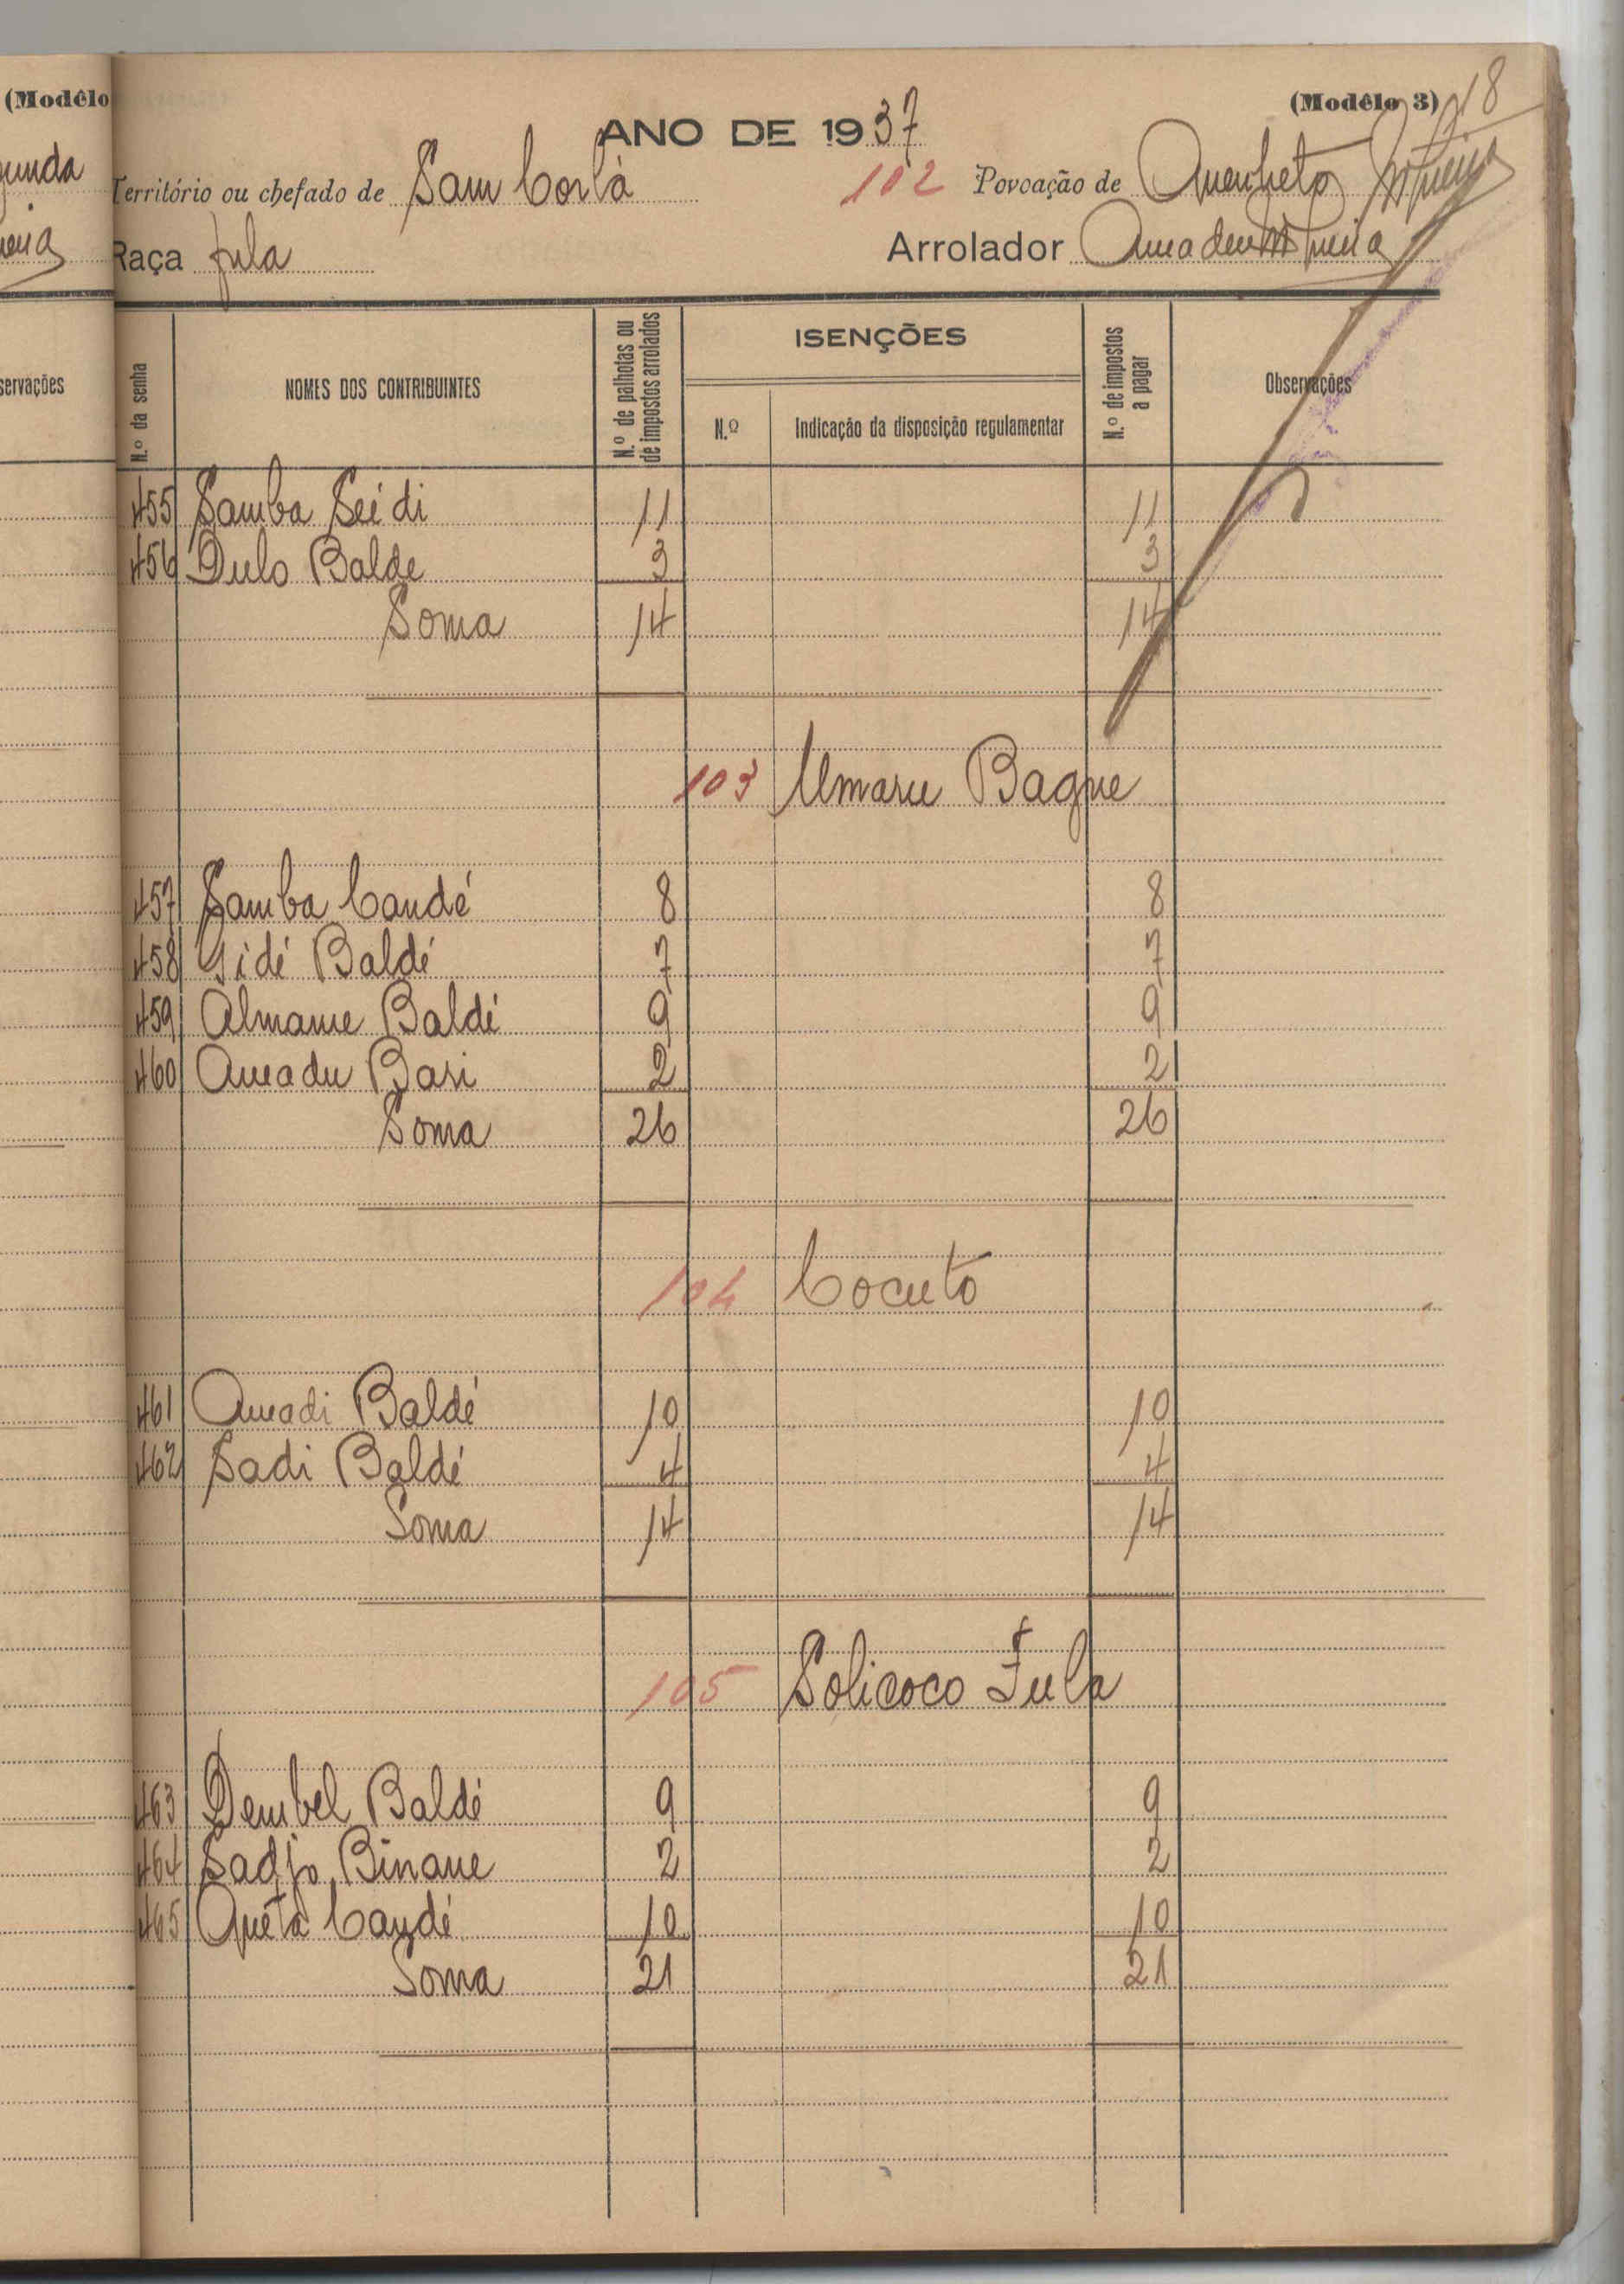 (Modêlo
(Modêlo 3) 18
ANO DE 1937
Território ou chefado de Sam Corlà 102 Povoação de Quenheto
Raça fula Arrolador
servações
N.º da senha NOMES DOS CONTRIBUINTES N.º de palhotas ou de impostos arrolados ISENÇÕES N.º de impostos a pagar Observações
N.º Indicação da disposição regulamentar
455 Samba Seidi 11 11
456 Dulo Balde 3 3
Soma 14 14
103 Umaru Bague
457 Samba Candé 8 8
458 Gidé Baldé 7 7
459 Almame Baldé 9 9
460 Amadu Bari 2 2
Soma 26 26
104 Cocuto
461 Amadi Baldé 10 10
462 Sadi Baldé 4 4
Soma 14 14
105 Solicoco Fula
463 Dembel Baldé 9 9
464 Sadjo Binane 2 2
465 Quêta Candé 10 10
Soma 21 21